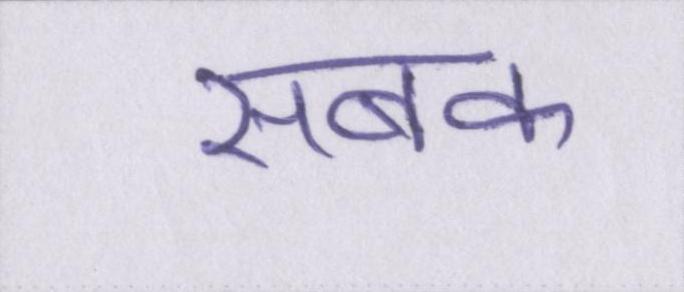 सबक